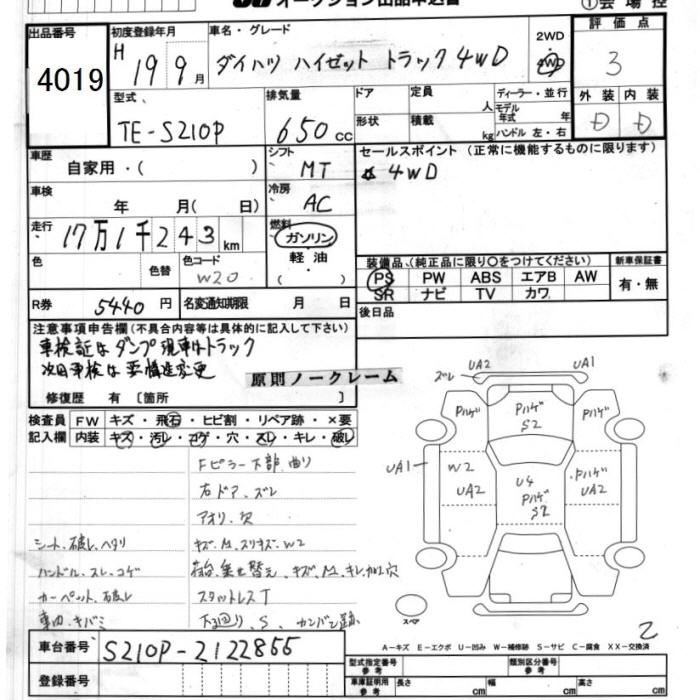 オークション出品申込書
①会場控
出品番号
4019
初度登録年月
H 19 9月
車名・グレード
ダイハツ ハイゼット トラック 4WD
2WD
4WD
評価点
3
型式
TE-S210P
排気量
650cc
ドア
定員
人
ディーラー・並行
形状
積載
kg
モデル年式 年
ハンドル 左・右
外装
内装
D
D
車歴
自家用・( )
シフト
MT
セールスポイント (正常に機能するものに限ります)
☆ 4WD
車検
年 月( 日)
冷房
AC
走行
17万1千243km
燃料
ガソリン
軽油
( )
色
色替
色コード
W20
装備品、(純正品に限り○をつけてください)
PS PW ABS エアB AW
SR ナビ TV カワ
新車保証書
有・無
R券
5440円
名変通知期限 月 日
後日品
注意事項申告欄(不具合内容等は具体的に記入して下さい)
車検証はダンプ現車はトラック
次回車検は要構造変更
原則ノークレーム
修復歴 有 [箇所
検査員記入欄
FW キズ・飛石・ヒビ割・リペア跡・×要
内装 キズ・汚レ・コゲ・穴・スレ・キレ・破レ
Fピラー下部曲り
右ドア、ズレ
アオリ、欠
シート、破レ、ヘタリ
キズ、M、スリキズ、W2
ハンドル、スレ、コゲ
荷台、乗せ替え、キズ、M、キレ、加工穴
カーペット、破レ
スタットレスT
車内、キバミ
下廻り、S、カンバン跡
ズレ
UA2
UA1
Pハゲ
Pハゲ
S2
Pハゲ
UA1
W2
UA2
U4
Pハゲ
S2
Pハゲ
UA2
スペア
2
A－キズ E－エクボ U－凹み W－補修跡 S－サビ C－腐食 XX－交換済
車台番号
S210P-2122855
登録番号
型式指定番号
参考
類別区分番号
参考
車庫証明用
参考
長さ cm
幅 cm
高さ cm